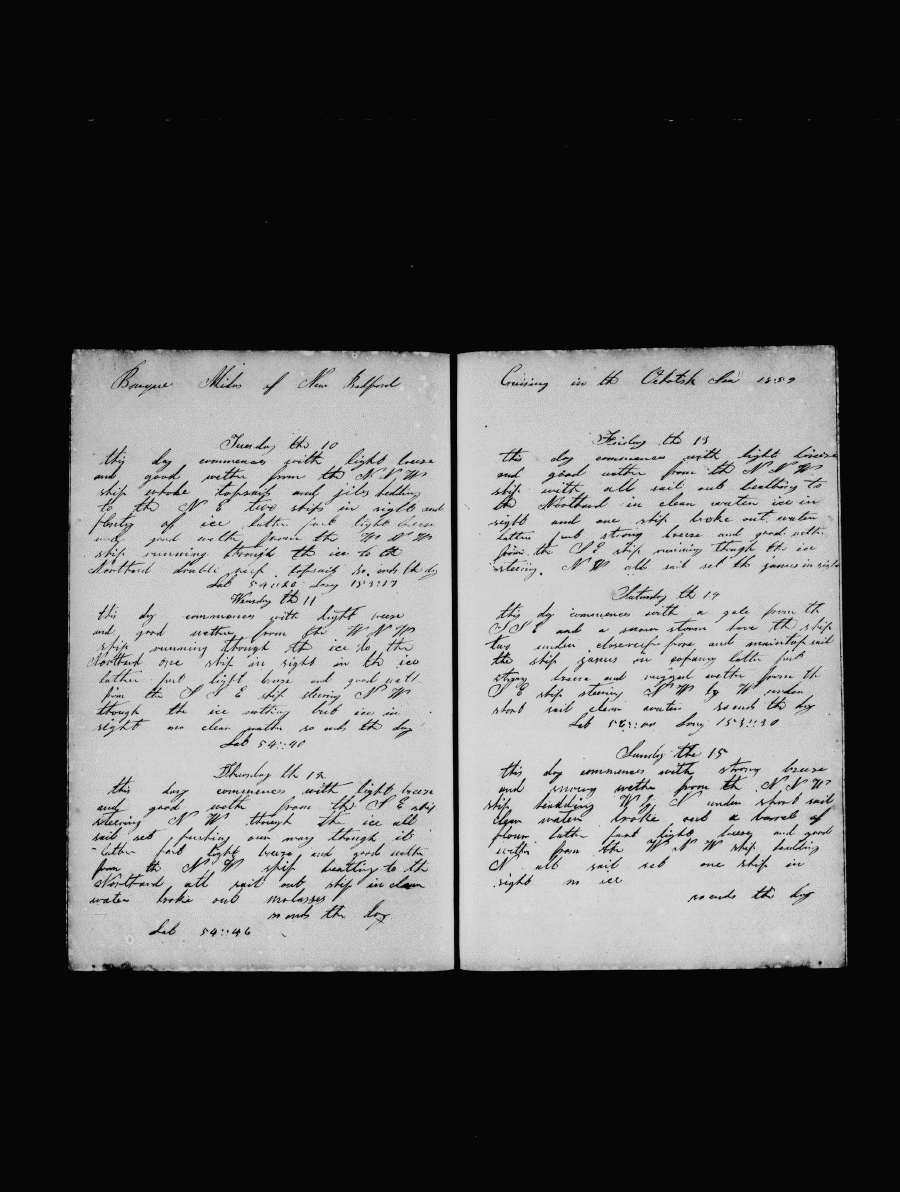 Barque Milos of New Bedford
Tuesday the 10
this day commences with light breeze
and good wether from the N N W
ship under topsails and jibs heading
to the N E two ships in sight and
plenty of ice latter part light breeze
and good wether from the W N W
ship running through the ice to the
Northard double reef topsails so ends the day
Lat 54::20 Long 153::17
Wensday the 11
this day commences with light breeze
and good wether from the W N W
ship running through the ice to the
Northard one ship in sight in the ice
latter part light breeze and good weth
from the S S E ship steering N W
though the ice nothing but ice in
sight no clean watter so ends the day
Lat 54::40
Thursday the 12
this day commences with light breeze
and good wether from the S E ship
steering N W though the ice all
sail set pushing our way though ice
latter part light breeze and good wether
from the N W ship beatting to the
Northard all sail out ship in clean
water broke out molasses
so ends the day
Lat 54::46
Cruising in the Ochotsk Sea 1859
Friday the 13
this day commences with light breeze
and good wether from the N N W
ship with all sail out beatting to
the Northard in clean water ice in
sight and one ship broke out water
latter part strong breeze and good wether
from the S E ship running though the ice
steering N W all sail set the James in sight
Saturday the 14
this day commences with a gale from the
S S E and a snow storm hove the ship
two under closereef fore and maintopsail
the ship James in company latter part
strong breeze and rugged wether from the
S E ship steering N W by W under
short sail clean water so ends the day
Lat 55::00 Long 153::30
Sunday the 15
this day commences with strong breeze
and snowy wether from the N N W
ship heading W by S under short sail
clean water broke out a barrel of
flour latter part light breeze and good
wether from the W N W ship heading
N all sail set one ship in
sight no ice
so ends the day